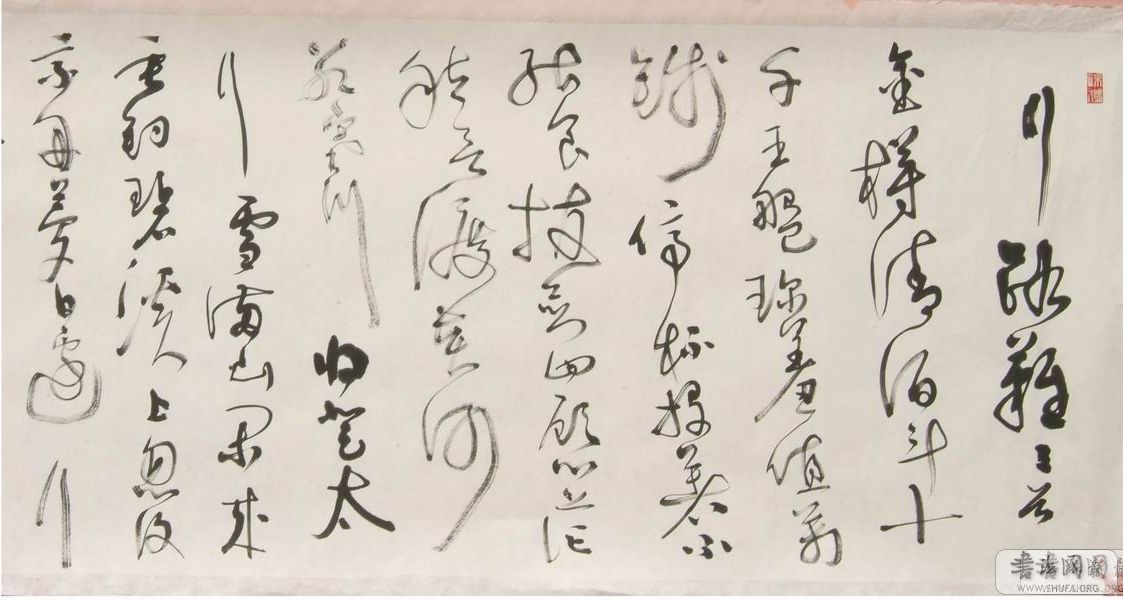 行路難三首
金樽清酒斗十
千玉盤珍羞值萬
錢停杯投箸不
能食拔劍四顧心茫
然欲渡黃河
冰塞川将登太
行雪滿山閑來
垂釣碧溪上忽復
乘舟夢日邊行
書法网
WWW.SHUFA.ORG